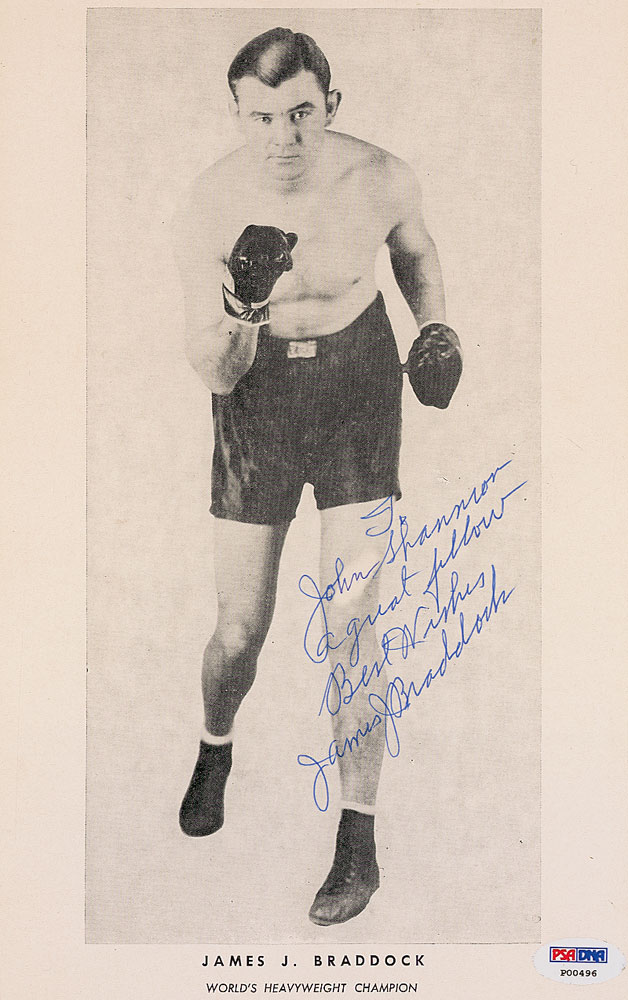 To
John Shannon
a great fellow
Best Wishes
James J Braddock
JAMES J. BRADDOCK
WORLD'S HEAVYWEIGHT CHAMPION
PSA DNA
P00496